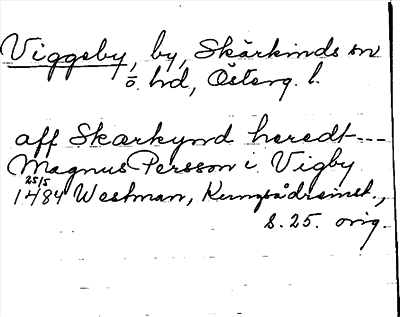 Viggeby, by, Skärkinds sn
ö. hd, Österg. l.
aff Skærkynd heredt ---
Magnus Persson i Vigby
25/5
1484 Westman, Kungsådreinst.,
s. 25. orig.